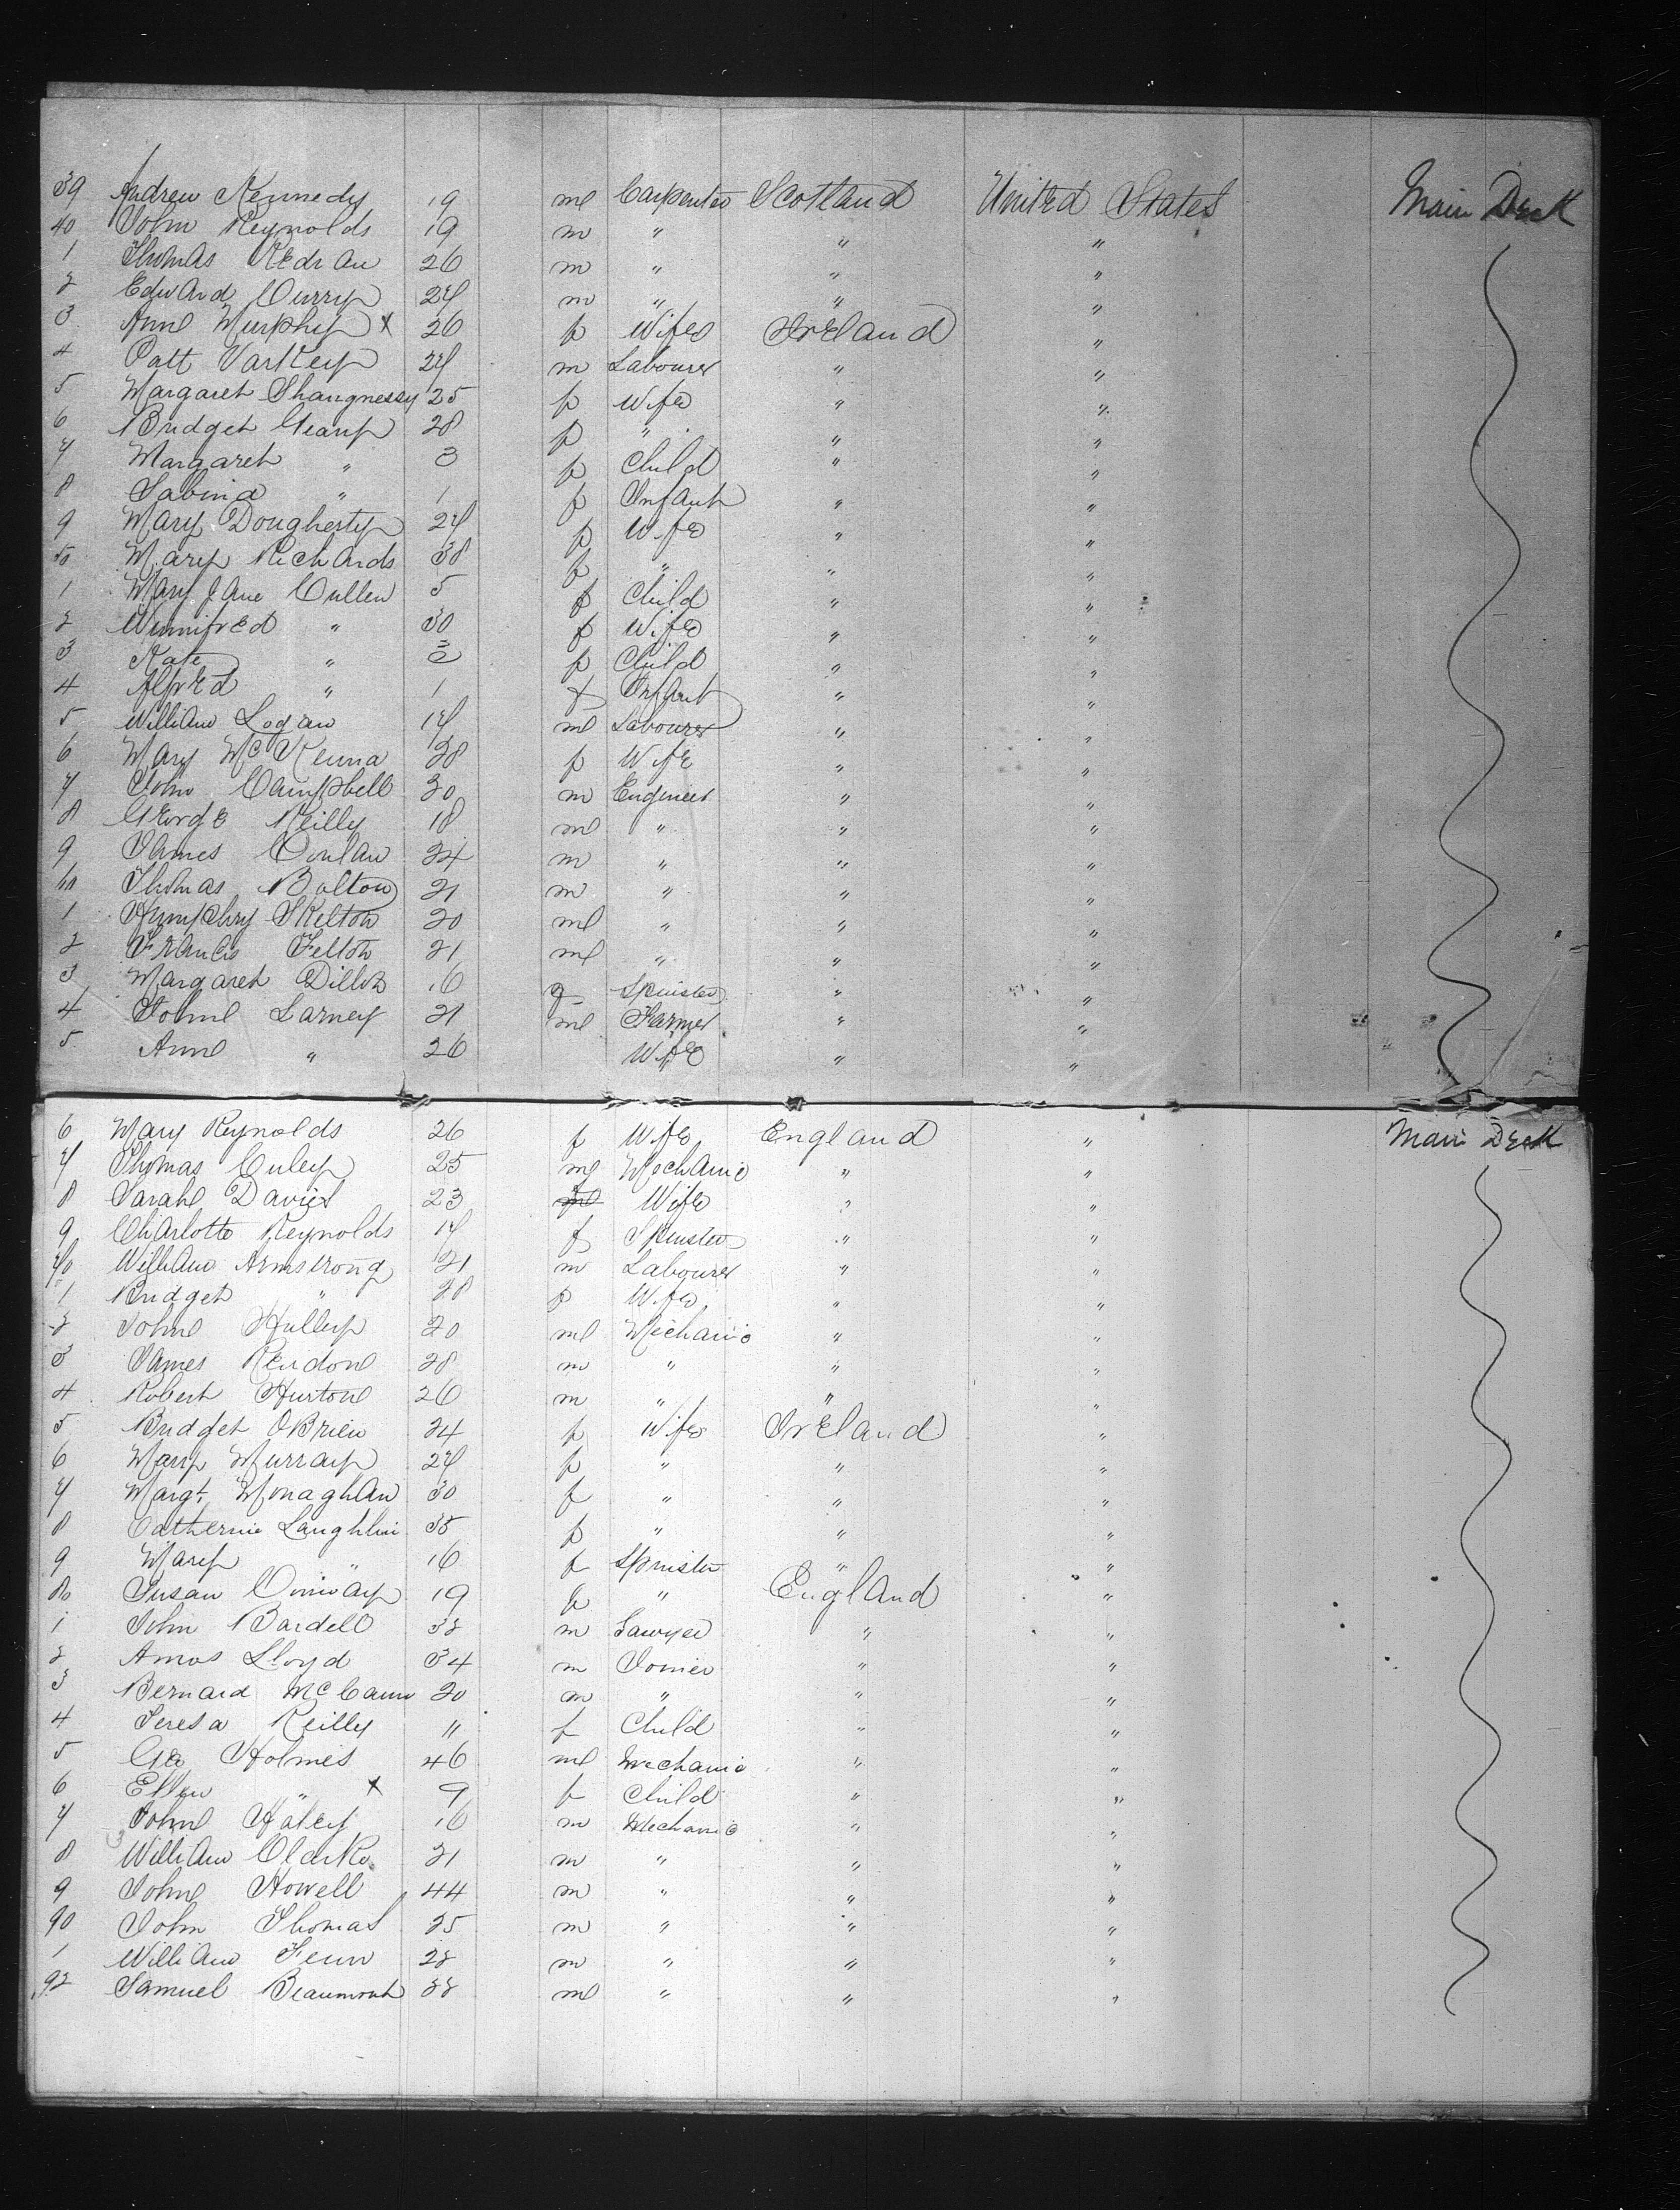 39 Andrew Kennedy 19 m Carpenter Scotland United States Main Deck
40 John Reynolds 19 m " " "
1 Thomas Redian 26 m " " "
2 Edward Curry 27 m " " "
3 Ann Murphy x 26 f Wife Ireland "
4 Patt Varley 27 m Labourer " "
5 Margaret Shaugnessy 25 f Wife " "
6 Bridget Geary 28 f " " "
7 Margaret " 3 f Child " "
8 Sabina " 1 f Infant " "
9 Mary Dougherty 27 f Wife " "
50 Mary Richards 38 f " " "
1 Mary Jane Cullen 5 f Child " "
2 Winnifred " 30 f Wife " "
3 Kate " 2 f Child " "
4 Alfred " 1 f Infant " "
5 William Logan 17 m Labourer " "
6 Mary McKenna 28 f Wife " "
7 John Campbell 30 m Engineer " "
8 George Reilly 18 m " " "
9 James Conlan 24 m " " "
60 Thomas Bolton 21 m " " "
1 Humphry Skelton 20 m " " "
2 Francis Felton 21 m " " "
3 Margaret Dillon 16 f Spinster " "
4 John Larney 21 m Farmer " "
5 Ann " 26 Wife " "
6 Mary Reynolds 26 f Wife England " Main Deck
7 Thomas Curley 25 m Mechanic " "
8 Sarah Davies 23 Wife " "
9 Charlotte Reynolds 17 f Spinster " "
70 William Armstrong 21 m Labourer " "
1 Bridget " 28 f Wife " "
2 John Hulley 20 m Mechanic " "
3 James Rendon 28 m " " "
4 Robert Hurton 26 m " " "
5 Bridget OBrien 24 f Wife Ireland "
6 Mary Murray 27 f " " "
7 Margt. Monaghan 30 f " " "
8 Catherine Laughlin 35 f " " "
9 Mary " 16 f Spinster " "
80 Susan Conway 19 f " England "
1 John Bardell 32 m Sawyer " "
2 Amos Lloyd 34 m Joiner " "
3 Bernard McCann 20 m " " "
4 Teresa Reilly 11 f Child " "
5 Geo Holmes 46 m Mechanic " "
6 Ellen " x 9 f Child " "
7 John Haley 16 m Mechanic " "
8 William Clarke 21 m " " "
9 John Howell 44 m " " "
90 John Thomas 25 m " " "
1 William Fenn 22 m " " "
92 Samuel Beaumont 32 m " " "